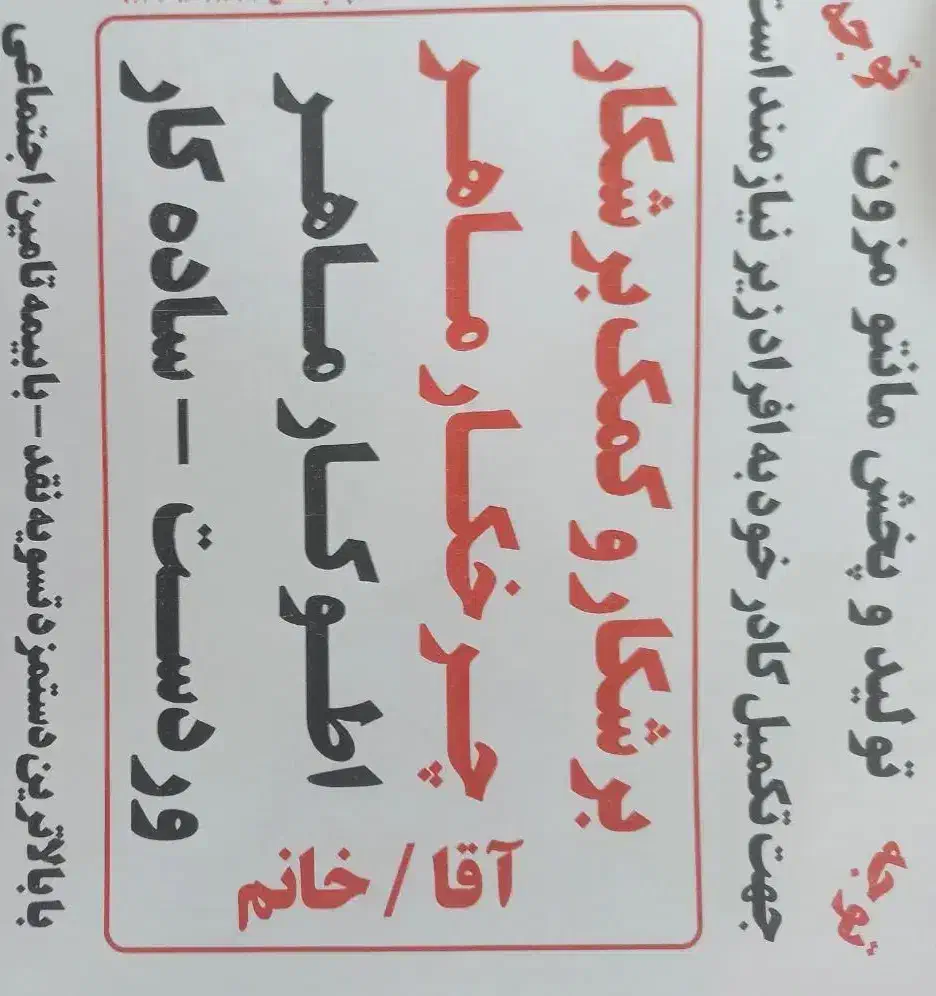 توجه تولید و پخش مانتو مزون توجه
جهت تکمیل کادر خود به افراد زیر نیازمند است
آقا / خانم
برشکار و کمک برشکار
چرخکار ماهر
اطوکار ماهر
وردست - ساده کار
با بالاترین دستمزد تسویه نقد - با بیمه تامین اجتماعی